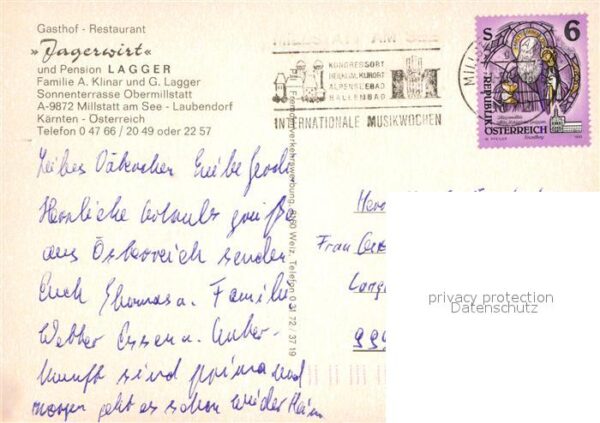 Gasthof - Restaurant
»Jagerwirt«
und Pension LAGGER
Familie A. Klinar und G. Lagger
Sonnenterrasse Obermillstatt
A-9872 Millstatt am See - Laubendorf
Kärnten - Österreich
Telefon 0 47 66 / 20 49 oder 22 57
MILLSTATT AM SEE
KONGRESSORT
HEILKLIMKURORT
ALPENSEEBAD
HALLENBAD
INTERNATIONALE MUSIKWOCHEN
MILL
S 6
REPUBLIK
ÖSTERREICH
Fremdenverkehrswerbung, 8160 Weiz, Telefon 0 31 72 / 37 19
Liebes
Herzliche Urlaubs grüße
aus Österreich senden
Euch Thomas u. Familie
Essen u. Unter-
kunft sind prima und
morgen geht es schon wieder Heim
Herr
Frau
privacy protection
Datenschutz